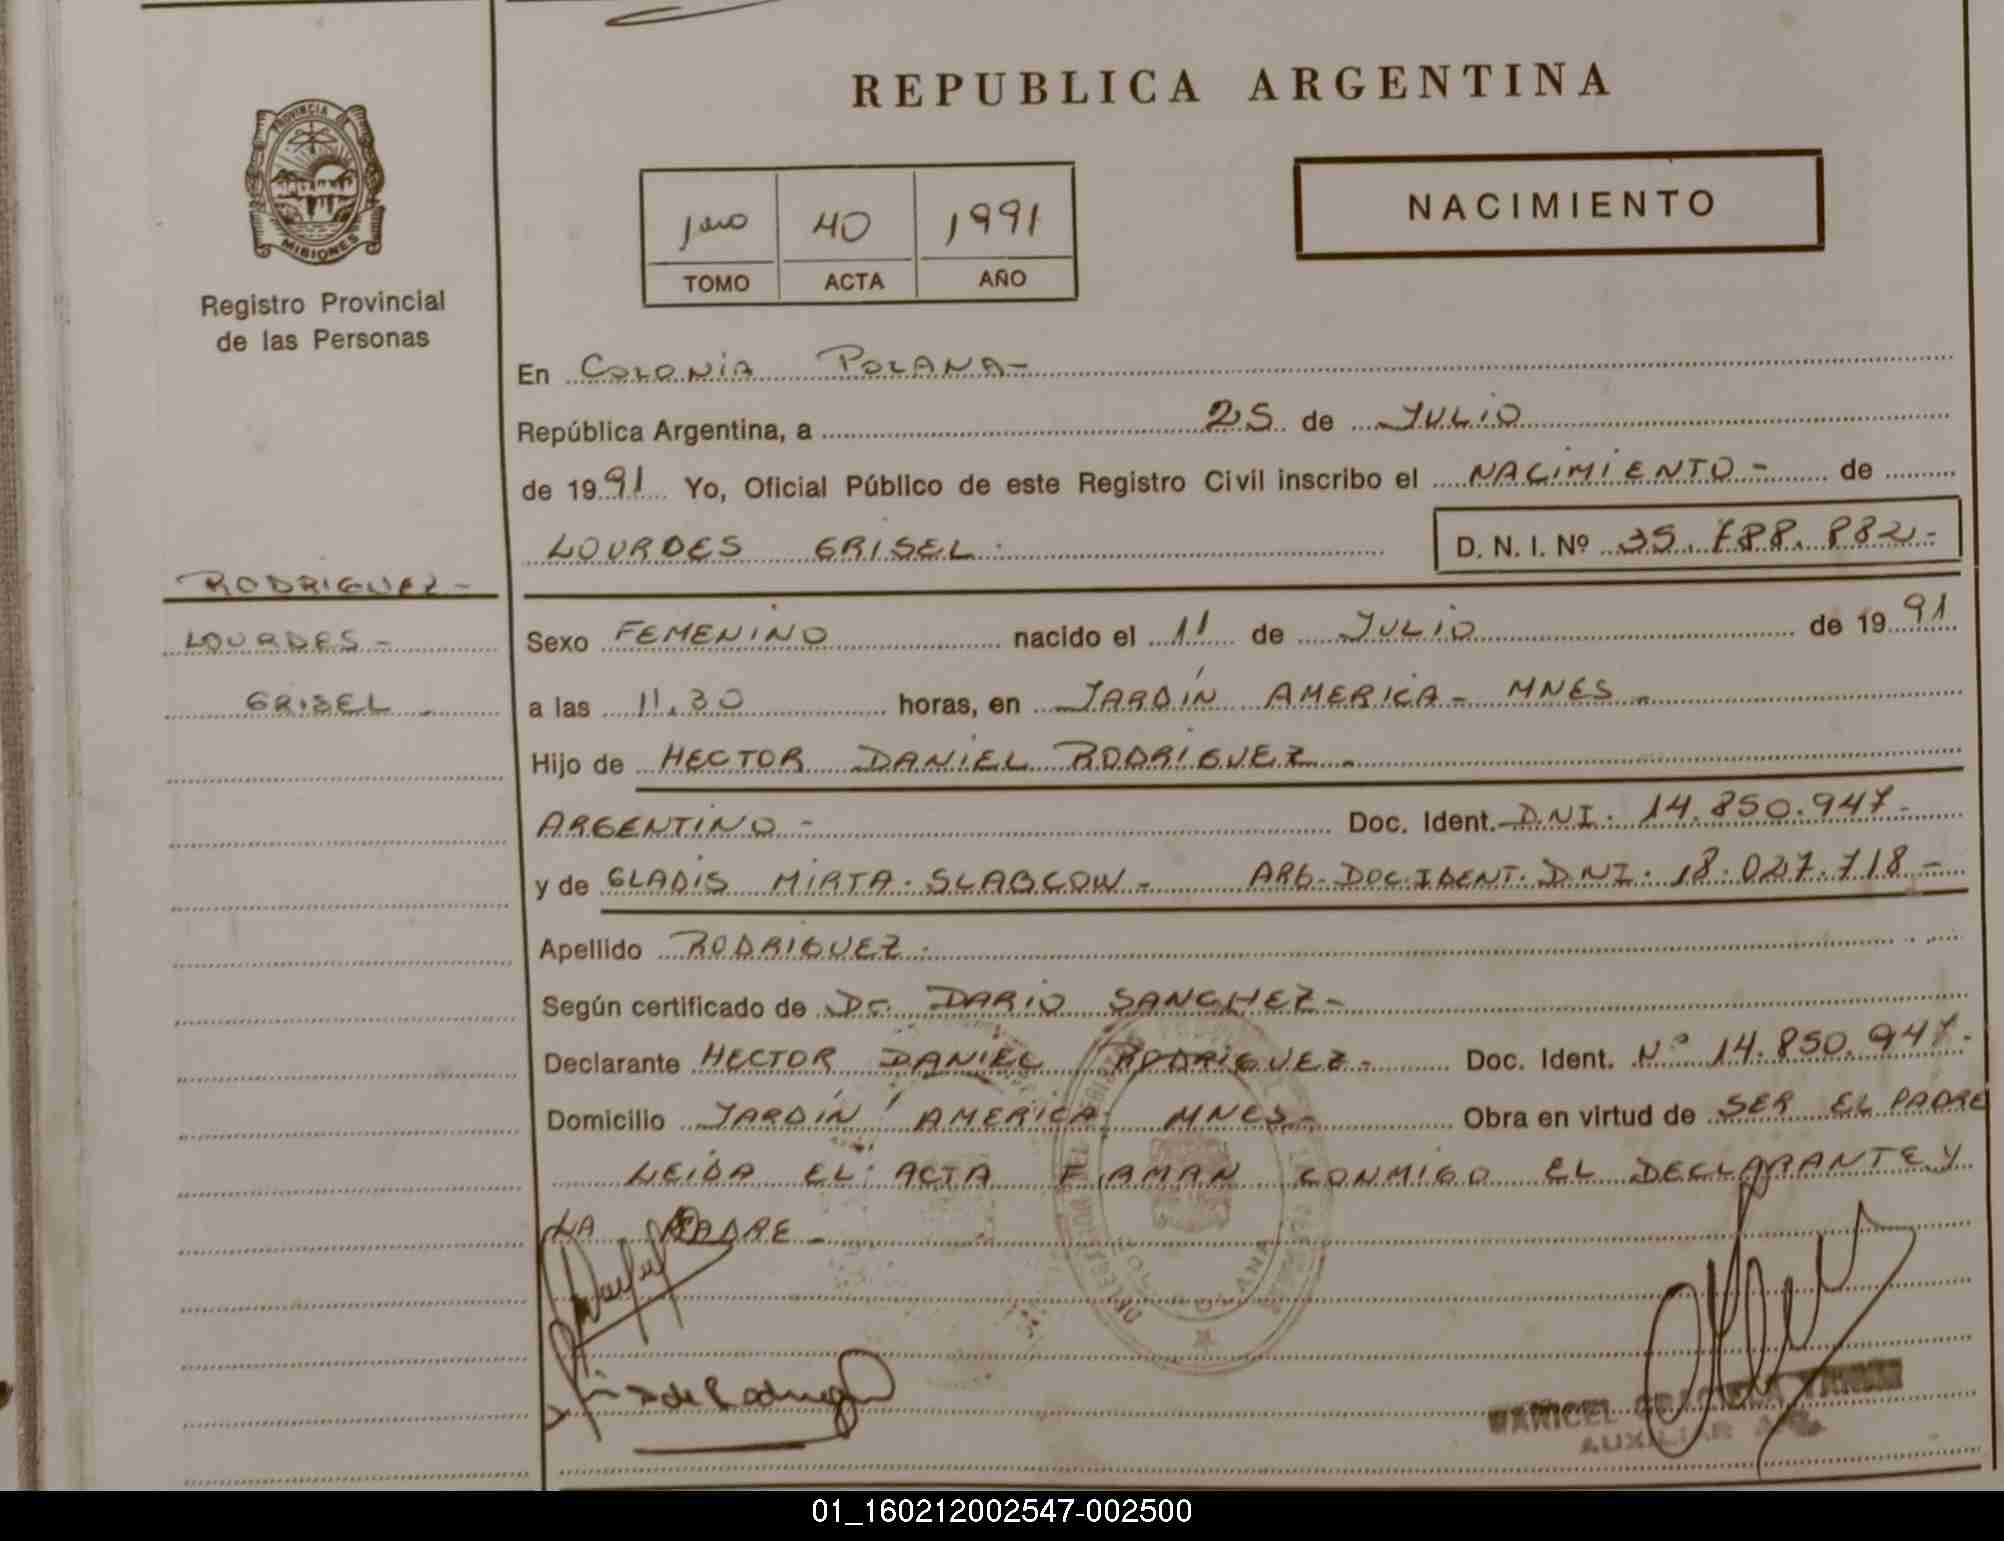 REPUBLICA ARGENTINA
PROVINCIA DE
MISIONES
Registro Provincial
de las Personas
1ero 40 1991
TOMO ACTA AÑO
NACIMIENTO
En COLONIA POLANA-
República Argentina, a 25 de JULIO
de 1991 Yo, Oficial Público de este Registro Civil inscribo el NACIMIENTO - de
LOURDES GRISEL.
D. N. I. Nº 35.788.882-
RODRIGUEZ-
LOURDES-
GRISEL-
Sexo FEMENINO nacido el 11 de JULIO de 1991
a las 11.30 horas, en JARDIN AMERICA - MNES -
Hijo de HECTOR DANIEL RODRIGUEZ.-
ARGENTINO - Doc. Ident. DNI. 14.850.947-
y de GLADIS MIRTA. SLABCOW - ARG-DOC.IDENT. DNI. 18.027.718-
Apellido RODRIGUEZ.
Según certificado de Dr. DARIO SANCHEZ-
Declarante HECTOR DANIEL RODRIGUEZ- Doc. Ident. Nº 14.850.947-
Domicilio JARDIN AMERICA, MNES- Obra en virtud de SER EL PADRE
LEIDA EL ACTA FIRMAN CONMIGO EL DECLARANTE Y
LA MADRE -
de Rodriguez
MARICEL GRACIELA
AUXILIAR
01_160212002547-002500